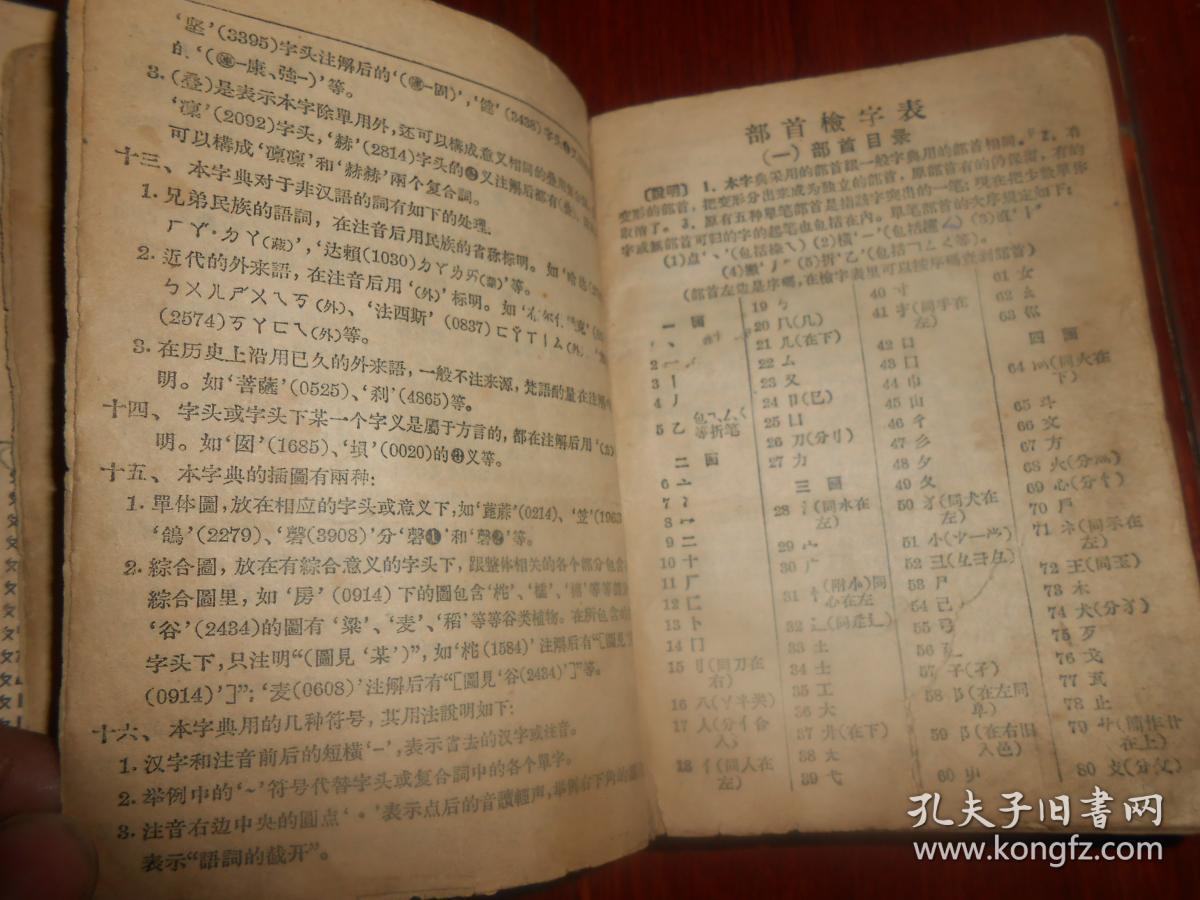 ‘坚’(3395)字头注解后的‘(連-固)’,‘健’(3438)字头
的‘(連-康、強-)’等。
3.(叠)是表示本字除單用外,还可以構成意义相同的叠用
‘凛’(2092)字头,‘赫’(2814)字头的 义注解后都有(叠),
可以構成‘凛凛’和‘赫赫’兩个复合詞。
十三、本字典对于非汉語的詞有如下的处理。
1.兄弟民族的語詞,在注音后用民族的省称标明。如‘哈达
ㄏㄚˊ·ㄉㄚ(藏)’,‘达賴(1030)ㄉㄚㄌㄞ(蒙)’等。
2.近代的外来語,在注音后用‘(外)’标明。如
ㄅㄨㄦㄕㄨㄟㄎ(外)、‘法西斯’(0837)ㄈㄚㄒㄧㄙ(外)、
(2574)ㄎㄚㄈㄟ(外)等。
3.在历史上沿用已久的外来語,一般不注来源,梵語酌量在注解
明。如‘菩薩’(0525)、‘刹’(4865)等。
十四、字头或字头下某一个字义是屬于方言的,都在注解后用‘(方)
明。如‘囡’(1685)、‘垻’(0020)的 义等。
十五、本字典的插圖有兩种:
1.單体圖,放在相应的字头或意义下,如‘蓖蔴’(0214)、‘笠’(1963
‘鴿’(2279)、‘磬(3908)’分‘磬❶’和‘磬❷’等。
2.綜合圖,放在有綜合意义的字头下,跟整体相关的各个部分包含
綜合圖里,如‘房’(0914)下的圖包含‘柁’、‘檩’、 等等部
‘谷’(2434)的圖有‘粱’、‘麦’、‘稻’等等谷类植物。在所包含的
字头下,只注明“(圖見‘某’)”,如‘柁(1584)’注解后有“[圖見‘房
(0914)’]”;‘麦(0608)’注解后有“[圖見‘谷(2434)’]”等。
十六、本字典用的几种符号,其用法說明如下:
1.汉字和注音前后的短橫‘-’,表示省去的汉字或注音。
2.举例中的‘~’符号代替字头或复合詞中的各个單字。
3.注音右边中央的圓点‘·’表示点后的音讀輕声,举例右下角的圓
表示“語詞的截开”。
部首檢字表
(一)部首目录
[說明] 1.本字典采用的部首跟一般字典用的部首相同。2.有
变形的部首,把变形分出来成为独立的部首,原部首有的仍保留,有的
取消了。3.原有五种單笔部首是指該字突出的一笔;現在把少数單你
字或無部首可归的字的起笔也包括在內。單笔部首的次序規定如下:
(1)点‘丶’(包括捺㇏) (2)橫‘一’(包括提㇀) (3)直‘丨’
(4)撇‘丿’ (5)折‘乙’(包括㇕乚ㄥく等)。
(部首左边是序碼,在檢字表里可以按序碼查到部首)
一画
1 丶
2 一
3 丨
4 丿
5 乙
等折笔
二画
6 亠
7 冫
8 冖
9 二
10 十
11 厂
12 匚
13 卜
14 冂
15 刂(同刀在
右)
16 八(丷半类)
17 人(分亻合
入)
18 亻(同人在
左)
19 勹
20 几(几)
21 儿(在下)
22 厶
23 又
24 卩(㔾)
25 凵
26 刀(分刂)
27 力
三画
28 氵(同水在
左)
29 宀
30 广
31 忄(附㣺)同
心在左
32 辶(同辵⻍)
33 土
34 士
35 工
36 大
37 廾(在下)
38 尢
39 弋
40 寸
41 扌(同手在
左)
42 口
43 囗
44 巾
45 山
46 彳
47 彡
48 夕
49 夂
50 犭(同犬在
左)
51 小(⺌⺍)
52 彐(彑ヨ彑)
53 尸
54 己
55 弓
57 子(孑)
58 阝(在左同
阜)
59 阝(在右旧
入邑)
60 屮
61 女
62 幺
63 巛
四画
64 灬(同火在
下)
65 斗
66 文
67 方
68 火(分灬)
69 心(分忄)
70 户
71 礻(同示在
左)
72 王(同玉)
73 木
74 犬(分犭)
75 歹
76 戈
77 瓦
78 止
79 艹(簡作卄
在上)
80 支(分攵)
孔夫子旧书网
www.kongfz.com